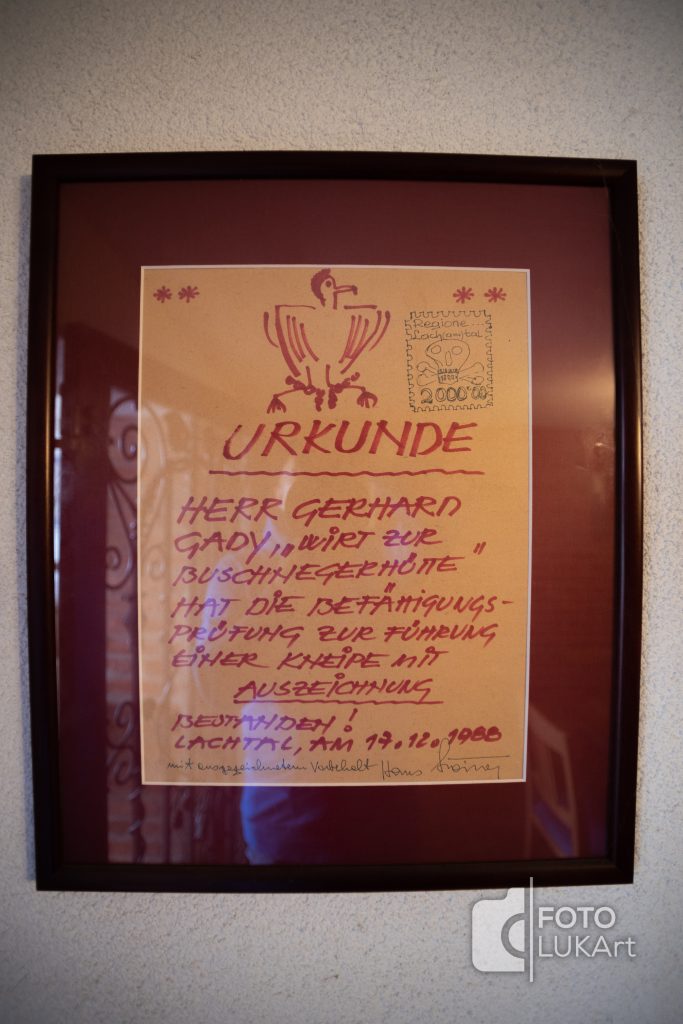 ** **
Regione...
Lach(am)tal
2000.00
URKUNDE
HERR GERHARD
GADY, „WIRT ZUR
BUSCHNEGERHÜTTE"
HAT DIE BEFÄHIGUNGS-
PRÜFUNG ZUR FÜHRUNG
EINER KNEIPE MIT
AUSZEICHNUNG
BESTANDEN!
LACHTAL, AM 17.12.1988
mit ausgezeichnetem Vorbehalt Hans
FOTO
LUKArt